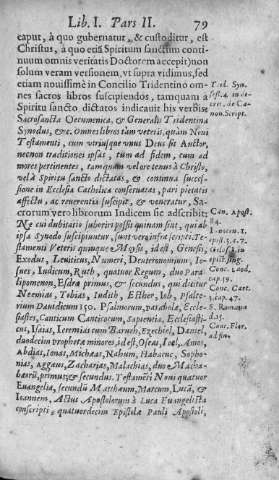 Lib. I. Pars II. 79
caput, à quo gubernatur, & custoditur, est
Christus, à quo etiã Spiritum sanctum conti-
nuum omnis veritatis Doctorem accepit) non
solum veram versionem, vt supra vidimus, sed
etiam nouissimè in Concilio Tridentino om-
nes sacros libros suscipiendos, tamquam à
Spiritu sancto dictatos indicauit his verbis
Sacrosancta Oecumenica, & Generalis Tridentina
Synodus, &c. Omnes libros tam veteris, quàm Noui
Testamenti, cum vtriusque vnus Deus sit Auctor,
necnon traditiones ipsas, tum ad fidem, cum ad
mores pertinentes, tamquam vel ore tenus à Christo,
vel à Spiritu sancto dictatas, & continua succes-
sione in Ecclesia Catholica conseruatas, pari pietatis
affectu, ac reuerentia suscipit, & veneratur, Sa-
crorum vero librorum Indicem sic adscribit:
Ne cui dubitatio suboriri possit quinam sint, qui ab
ipsa Synodo suscipiuntur, sunt vero infra scripti. Te-
stamenti Veteri quinque Moyse, idest, Genesis,
Exodus, Leuiticus, Numeri, Deuteronomium, Io-
sues, Iudicum, Ruth, quatuor Regum, duo Para-
lipomenon, Esdræ primus, & secundus, qui dicitur
Neemias, Tobias, Iudith, Esther, Iob, Psalte-
rium Dauidicum 150. Psalmorum, parabolæ, Eccle-
siastes, Canticum Canticorum, Sapientia, Ecclesiasti-
cus, Isaias, Ieremias cum Baruch, Ezechiel, Daniel,
duodecim prophetæ minores, id est, Oseas, Ioel, Amos,
Abdias, Ionas, Michæas, Nahum, Habacuc, Sopho-
nias, Aggæus, Zacharias, Malachias, duo Macha-
bæorũ, primus, & secundus. Testamẽti Noui quatuor
Euangelia, secundũ Matthæum, Marcum, Lucã, &
Ioannem, Actus Apostolorum à Luca Euangelista
conscripti, quatuordecim Epistolæ Pauli Apostoli,
Trid. Syn.
sess. 4. in de-
cret. de Ca-
non. Script.
Can. Apost.
84.